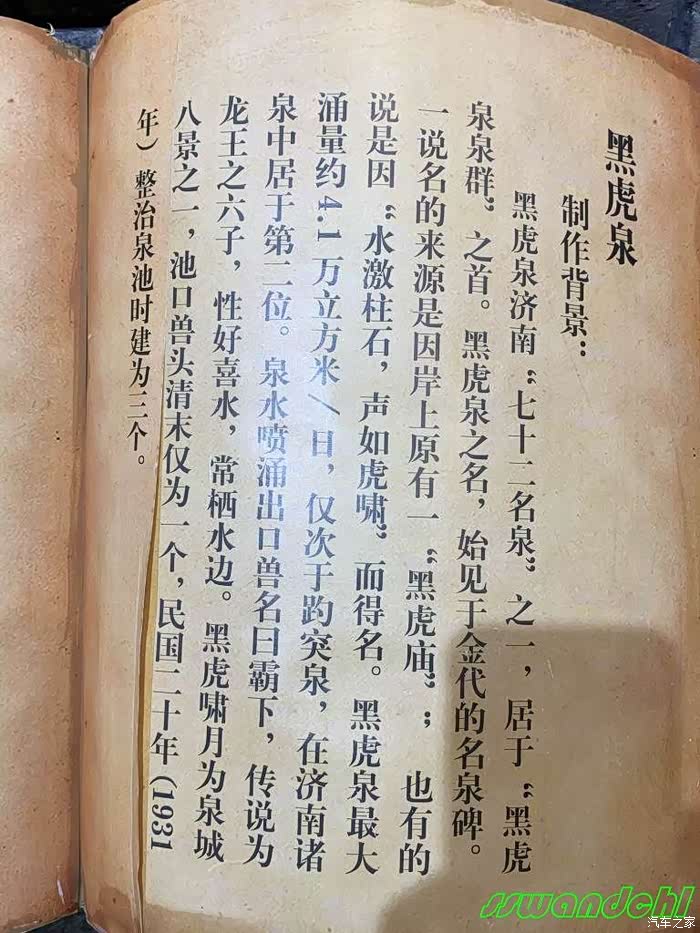 黑虎泉
制作背景：
黑虎泉济南“七十二名泉”之一，居于“黑虎
泉泉群”之首。黑虎泉之名，始见于金代的名泉碑。
一说名的来源是因岸上原有一“黑虎庙”；也有的
说是因“水激柱石，声如虎啸”而得名。黑虎泉最大
涌量约4.1万立方米/日，仅次于趵突泉，在济南诸
泉中居于第二位。泉水喷涌出口兽名曰霸下，传说为
龙王之六子，性好喜水，常栖水边。黑虎啸月为泉城
八景之一，池口兽头清末仅为一个，民国二十年（1931
年）整治泉池时建为三个。
sswandchl
汽车之家